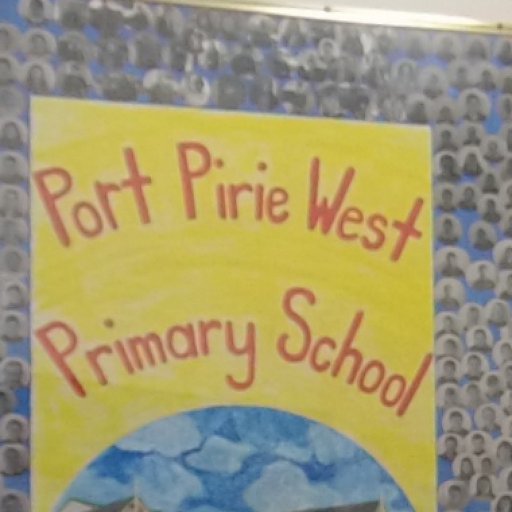 Port Pirie West
Primary School